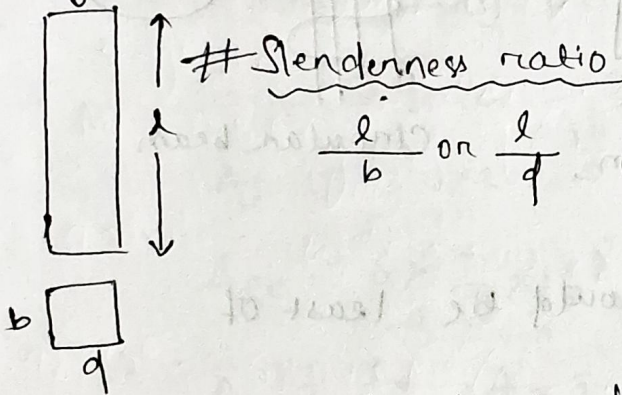 # Slenderness ratio
l
l/b or l/d
b
d